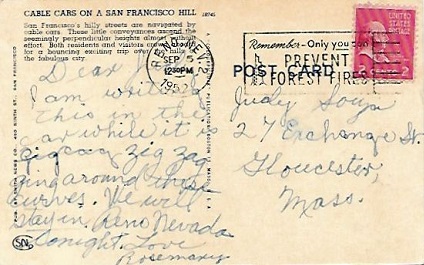 CABLE CARS ON A SAN FRANCISCO HILL
San Francisco's hilly streets are navigated by
cable cars. These little conveyances ascend the
seemingly perpendicular heights almost without
effort. Both residents and visitors crowd aboard
for a bouncing exciting trip over the hills of
the fabulous city.
SEP 5
12 30 PM
Remember - Only you can
PREVENT
FOREST FIRES
UNITED STATES
POSTAGE
POST CARD
Dear
I am writing
this in the
car while it is
zigzag zig zag
ging around these
curves. We will
stay in Reno Nevada
tonight. Love
Rosemary
Judy Souza
27 Exchange St.
Gloucester
Mass.